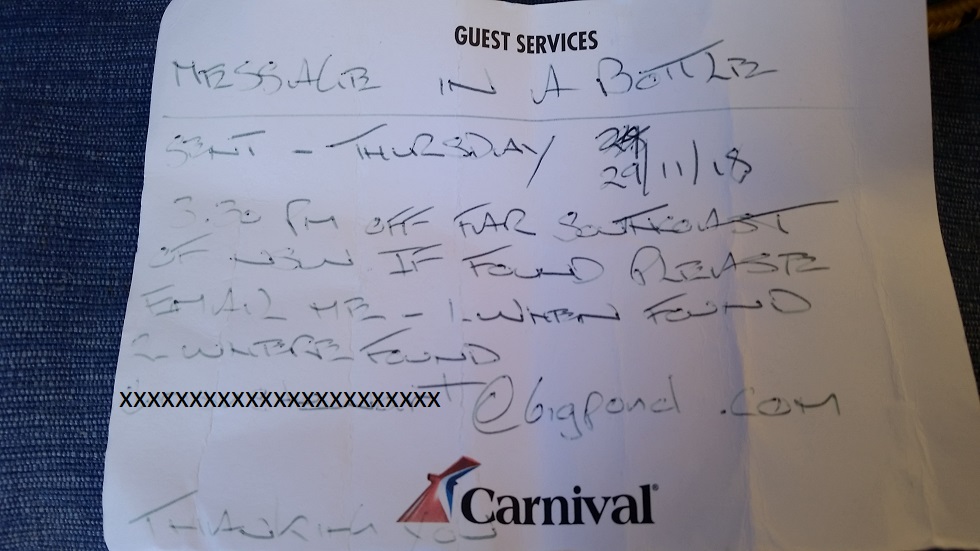 GUEST SERVICES
MESSAGE IN A BOTTLE
SENT - THURSDAY 29/11/18
3.30 PM OFF FAR SOUTHCOAST
OF NSW IF FOUND PLEASE
EMAIL ME - 1. WHEN FOUND
2. WHERE FOUND
XXXXXXXXXXXXXXXXXXXXXXX@bigpond.com
Carnival
THANKING YOU